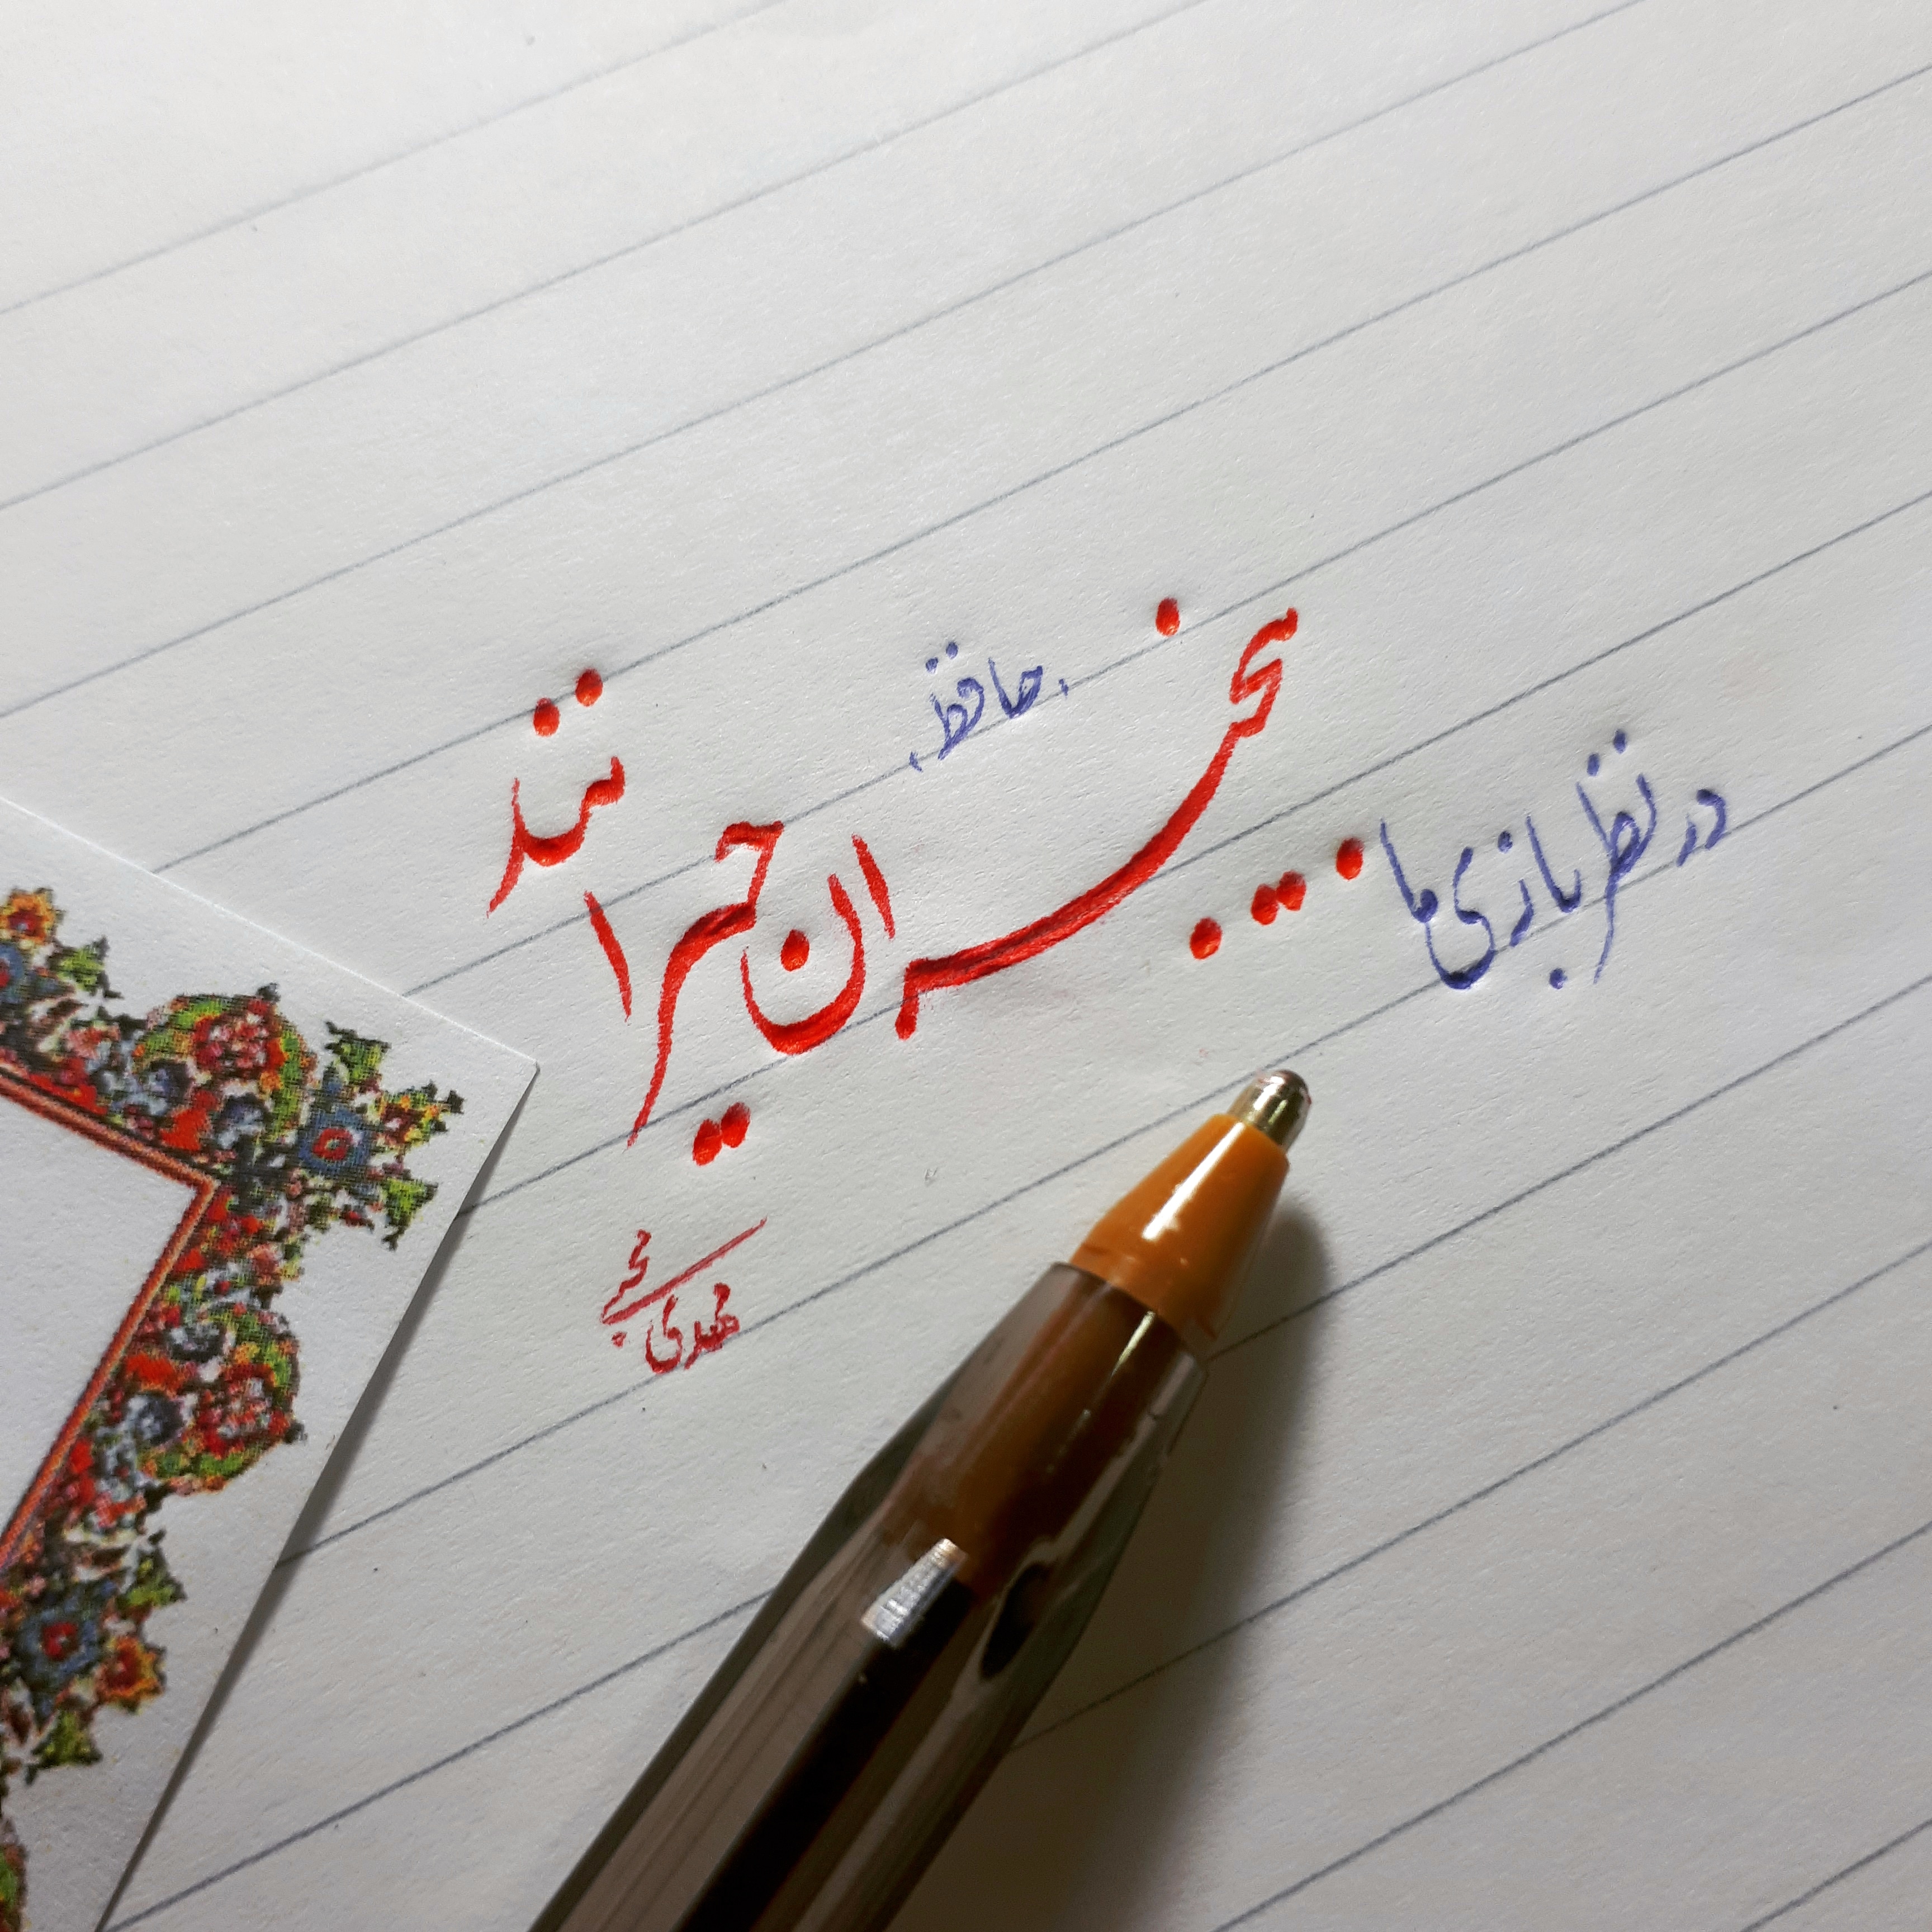 در نظر بازی ما
بیخبران حیرانند
حافظ
مهدی محبی